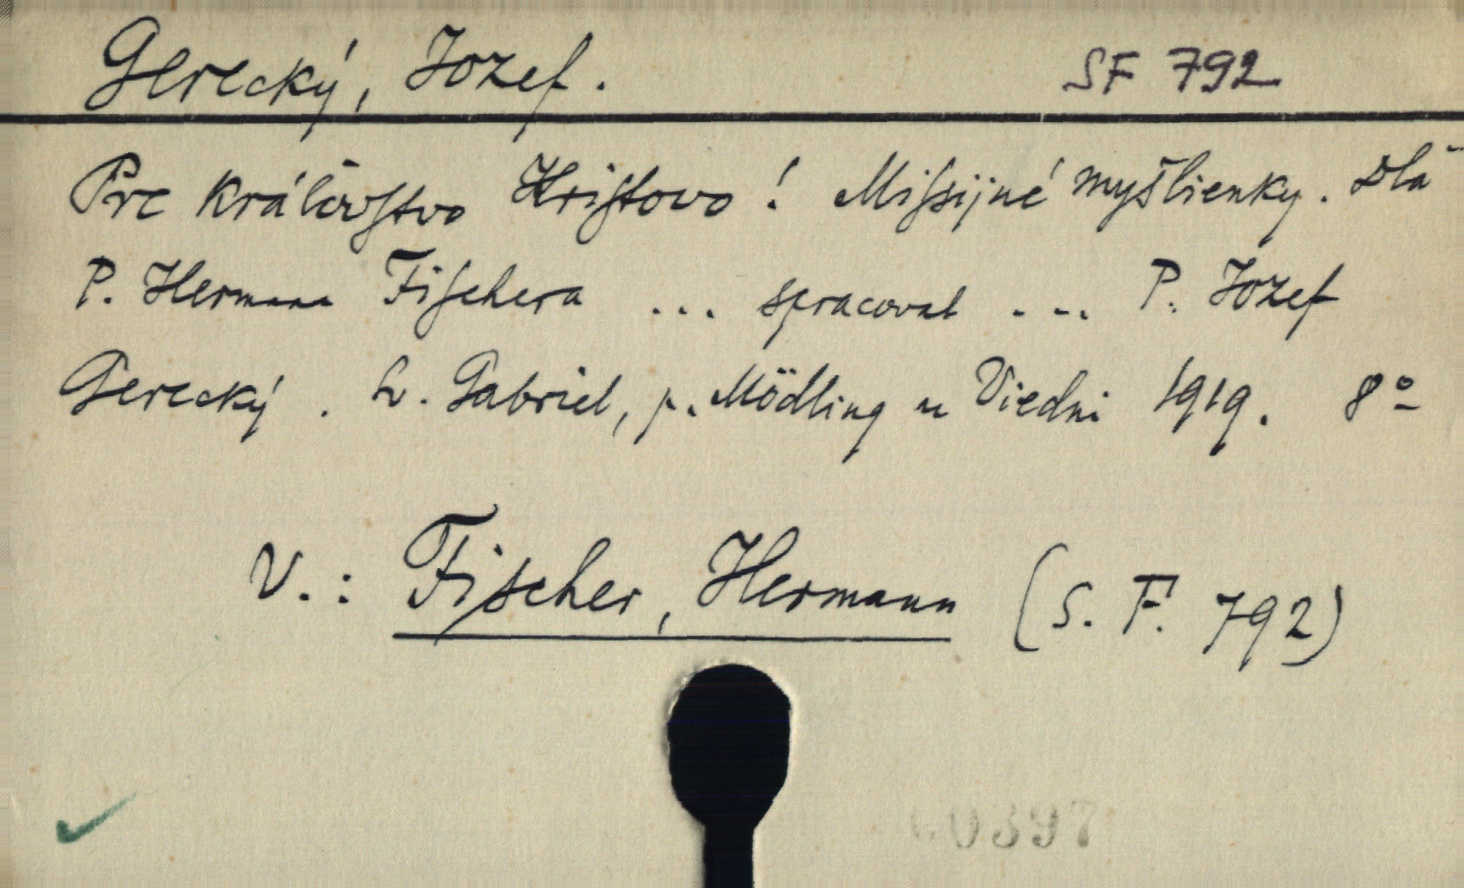 Gerecký, Jozef.
SF 792
Pre Královstvo Kristovo! Missijné myšlienky. Dlā
P. Hermana Fischera ... spracoval ... P. Jozef
Gerecký. Sv. Gabriel, p. Mödling u Viedni 1919. 8º
V.: Fischer, Hermann (S. F. 792)
0397